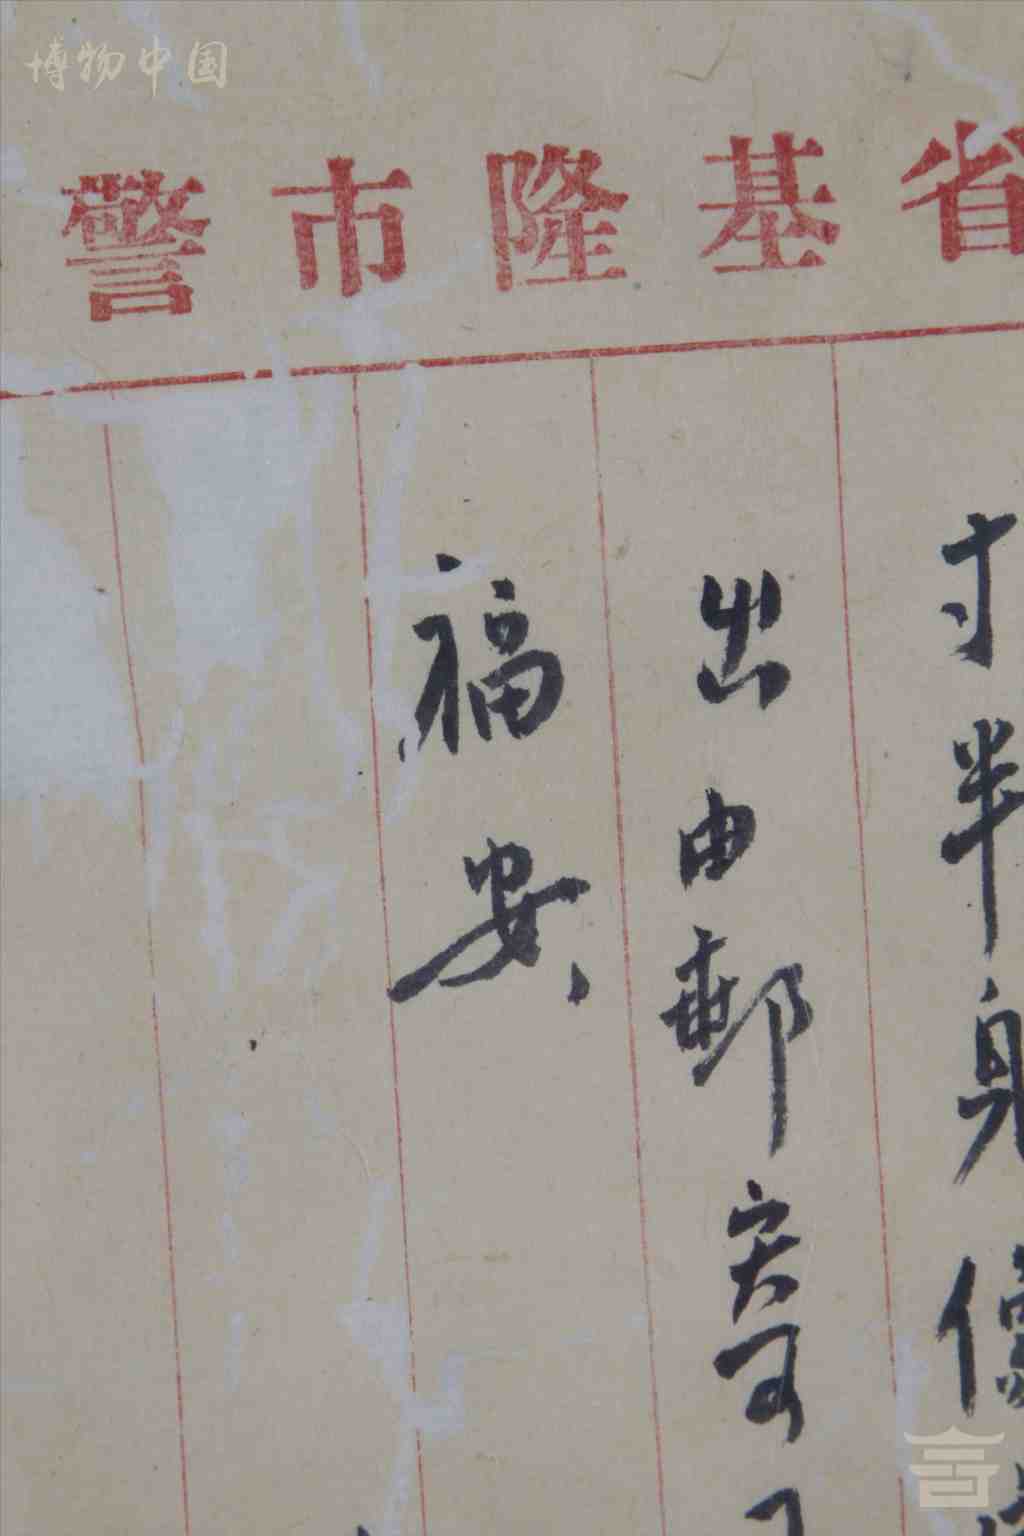 博物中国
省基隆市警
寸半身像
出由郵寄
福安